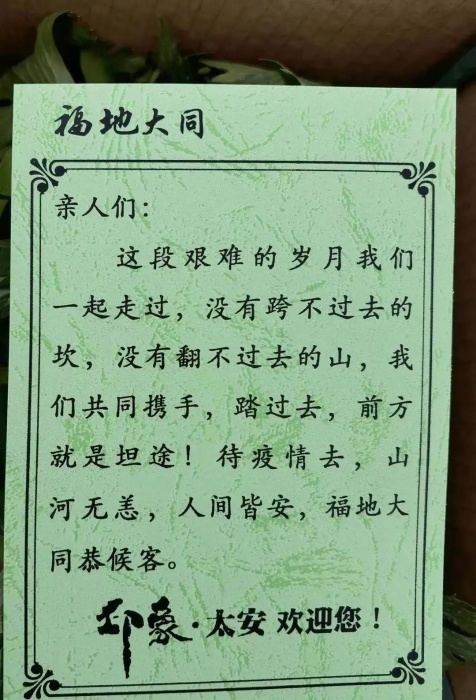 福地大同
亲人们：
这段艰难的岁月我们
一起走过，没有跨不过去的
坎，没有翻不过去的山，我
们共同携手，踏过去，前方
就是坦途！待疫情去，山
河无恙，人间皆安，福地大
同恭候客。
印象·太安 欢迎您！